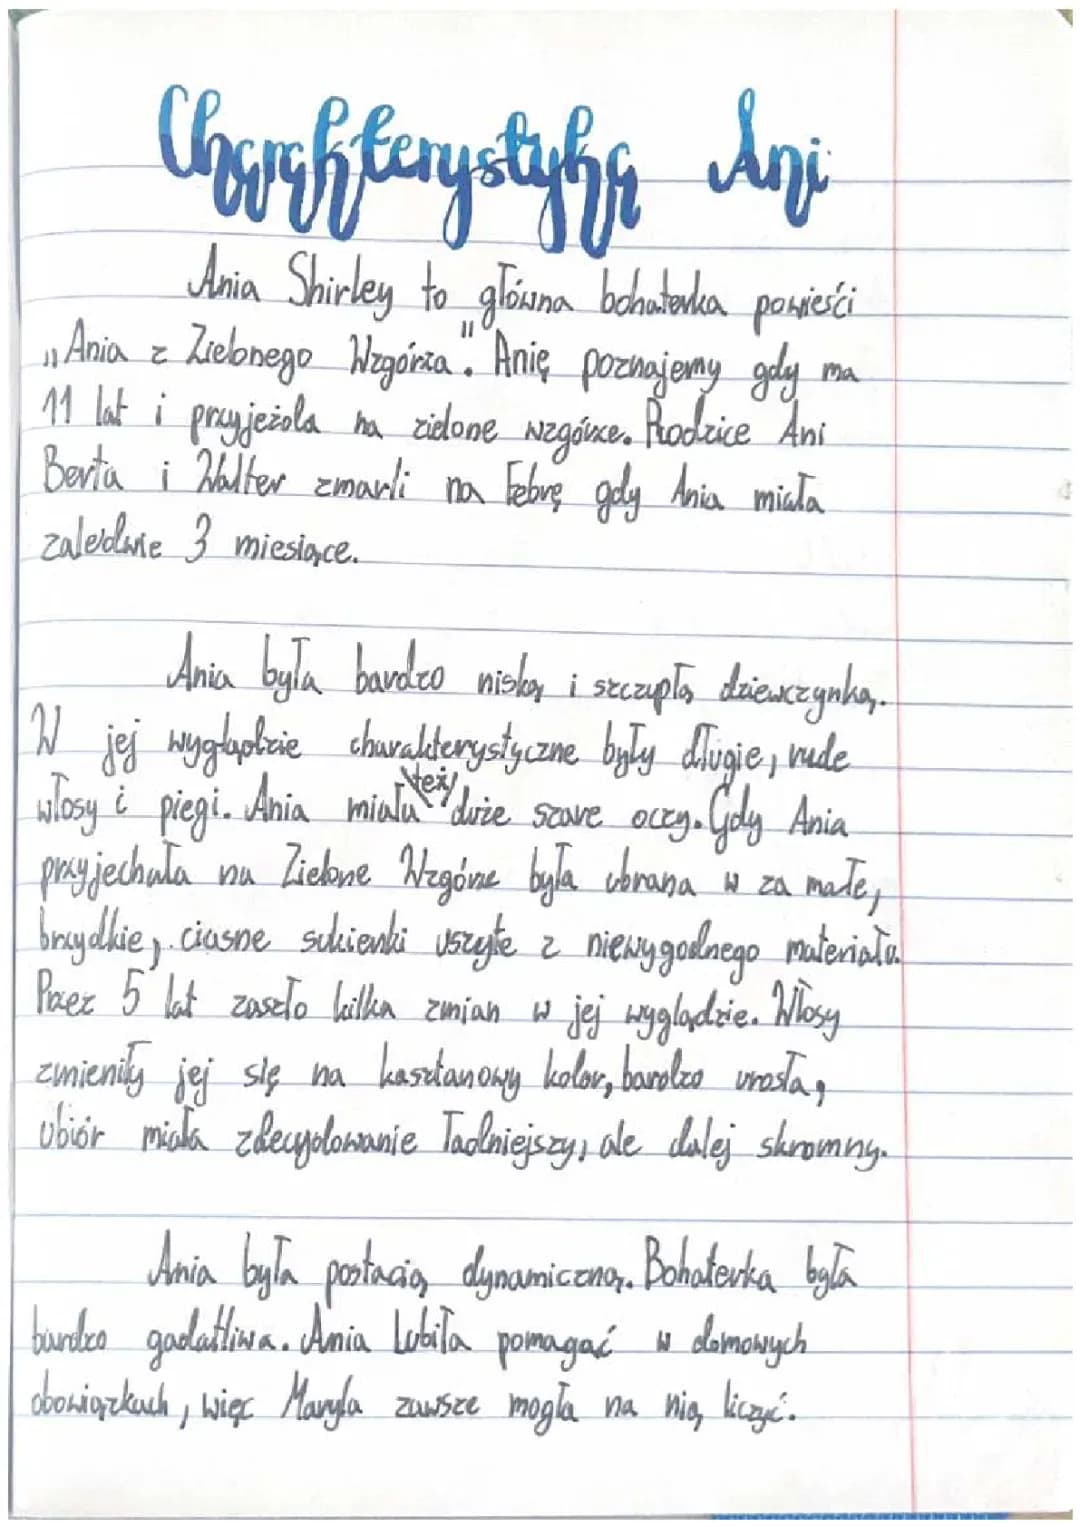 Charakterystyka Ani
Ania Shirley to główna bohaterka powieści
„Ania z Zielonego Wzgórza". Anię poznajemy gdy ma
11 lat i przyjeżdla na zielone wzgórze. Rodzice Ani
Berta i Walter zmarli na febrę gdy Ania miała
zaledwie 3 miesiące.
Ania była bardzo niską i szczupłą dziewczynką.
W jej wyglądzie charakterystyczne były długie, rude
włosy i piegi. Ania miała też duże szare oczy. Gdy Ania
przyjechała na Zielone Wzgórze była ubrana w za małe,
brzydkie, ciasne sukienki uszyte z niewygodnego materiału.
Przez 5 lat zaszło kilka zmian w jej wyglądzie. Włosy
zmieniły jej się na kasztanowy kolor, bardzo urosła,
ubiór miała zdecydowanie ładniejszy, ale dalej skromny.
Ania była postacią dynamiczną. Bohaterka była
bardzo gadatliwa. Ania lubiła pomagać w domowych
obowiązkach, więc Maryla zawsze mogła na nią liczyć.